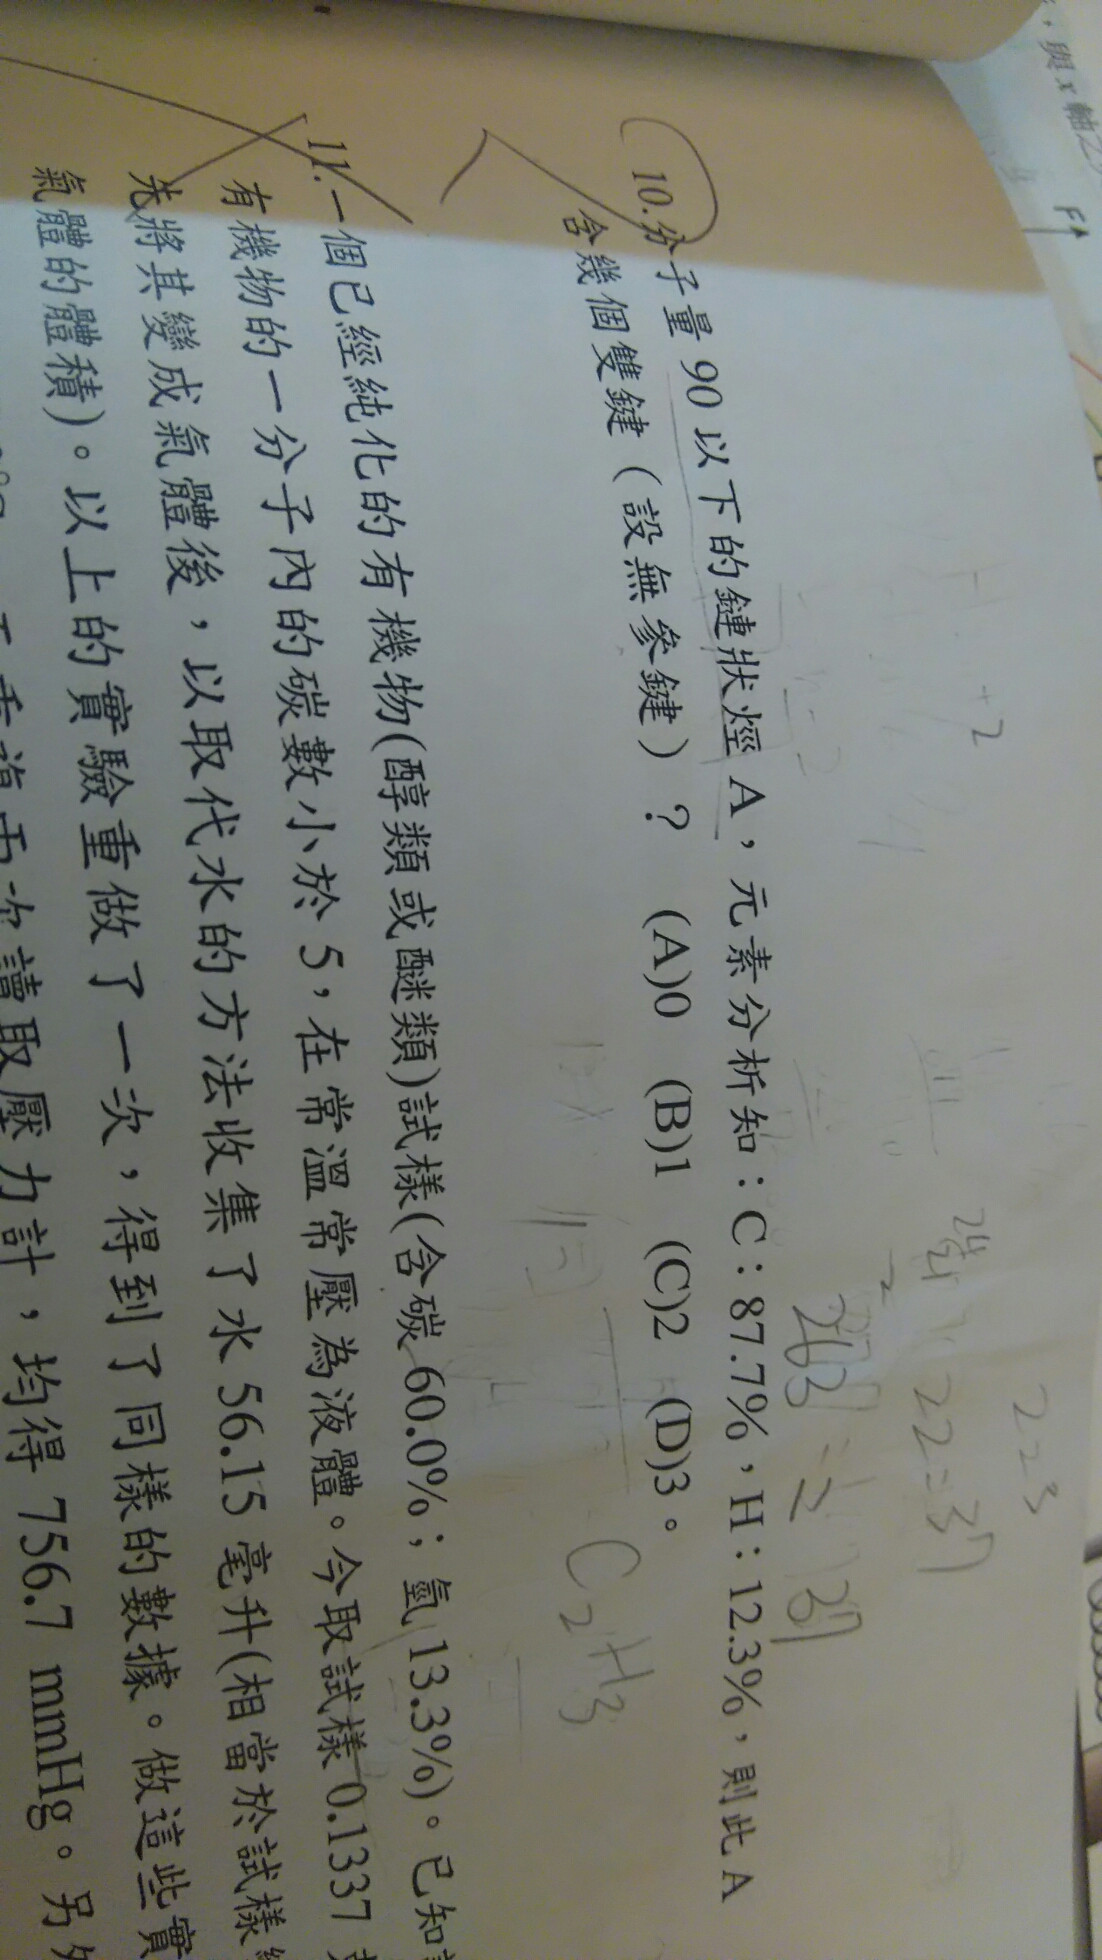 ，與 x 軸之
10.分子量 90 以下的鏈狀烴 A，元素分析知：C：87.7%，H：12.3%，則此 A
含幾個雙鍵（設無參鍵）？ (A)0 (B)1 (C)2 (D)3。
C2H3
11.一個已經純化的有機物(醇類或醚類)試樣(含碳 60.0%；氫 13.3%)。已知
有機物的一分子內的碳數小於 5，在常溫常壓為液體。今取試樣 0.1337
先將其變成氣體後，以取代水的方法收集了水 56.15 毫升(相當於試樣
氣體的體積)。以上的實驗重做了一次，得到了同樣的數據。做這些實
讀取壓力計，均得 756.7 mmHg。另外